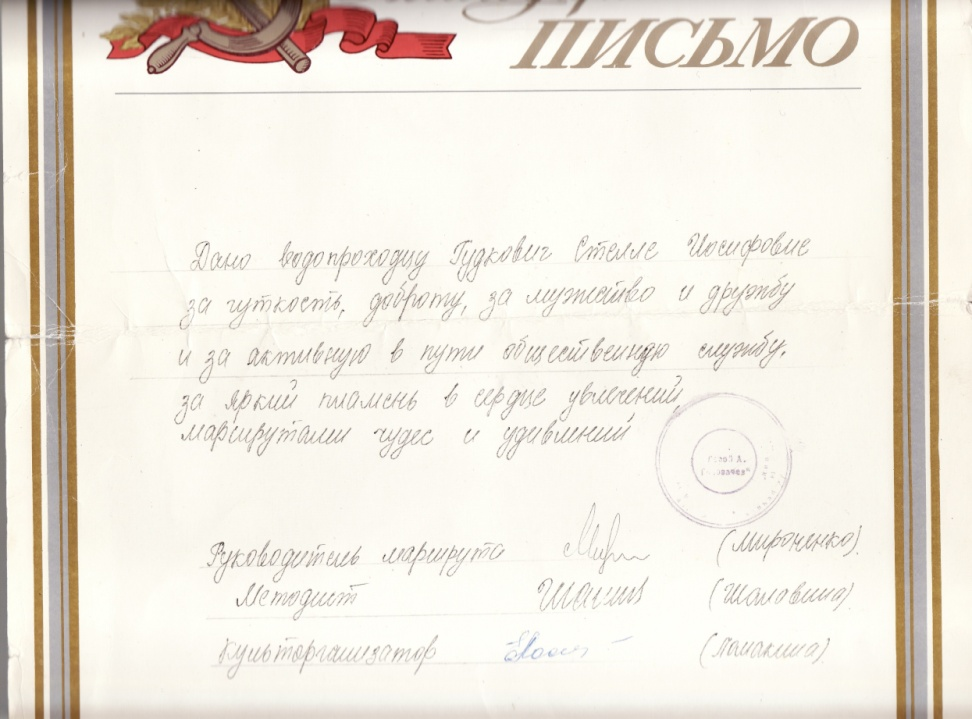 ПИСЬМО
Дано водопроходцу Гудкович Стелле Иосифовне
за чуткость, доброту, за мужество и дружбу
и за активную в пути общественную службу.
за яркий пламень в сердце увлечений
маршрутами чудес и удивлений
Руководитель маршрута (Мироненко).
Методист (Шаловина)
Культорганизатор (Ломакина)